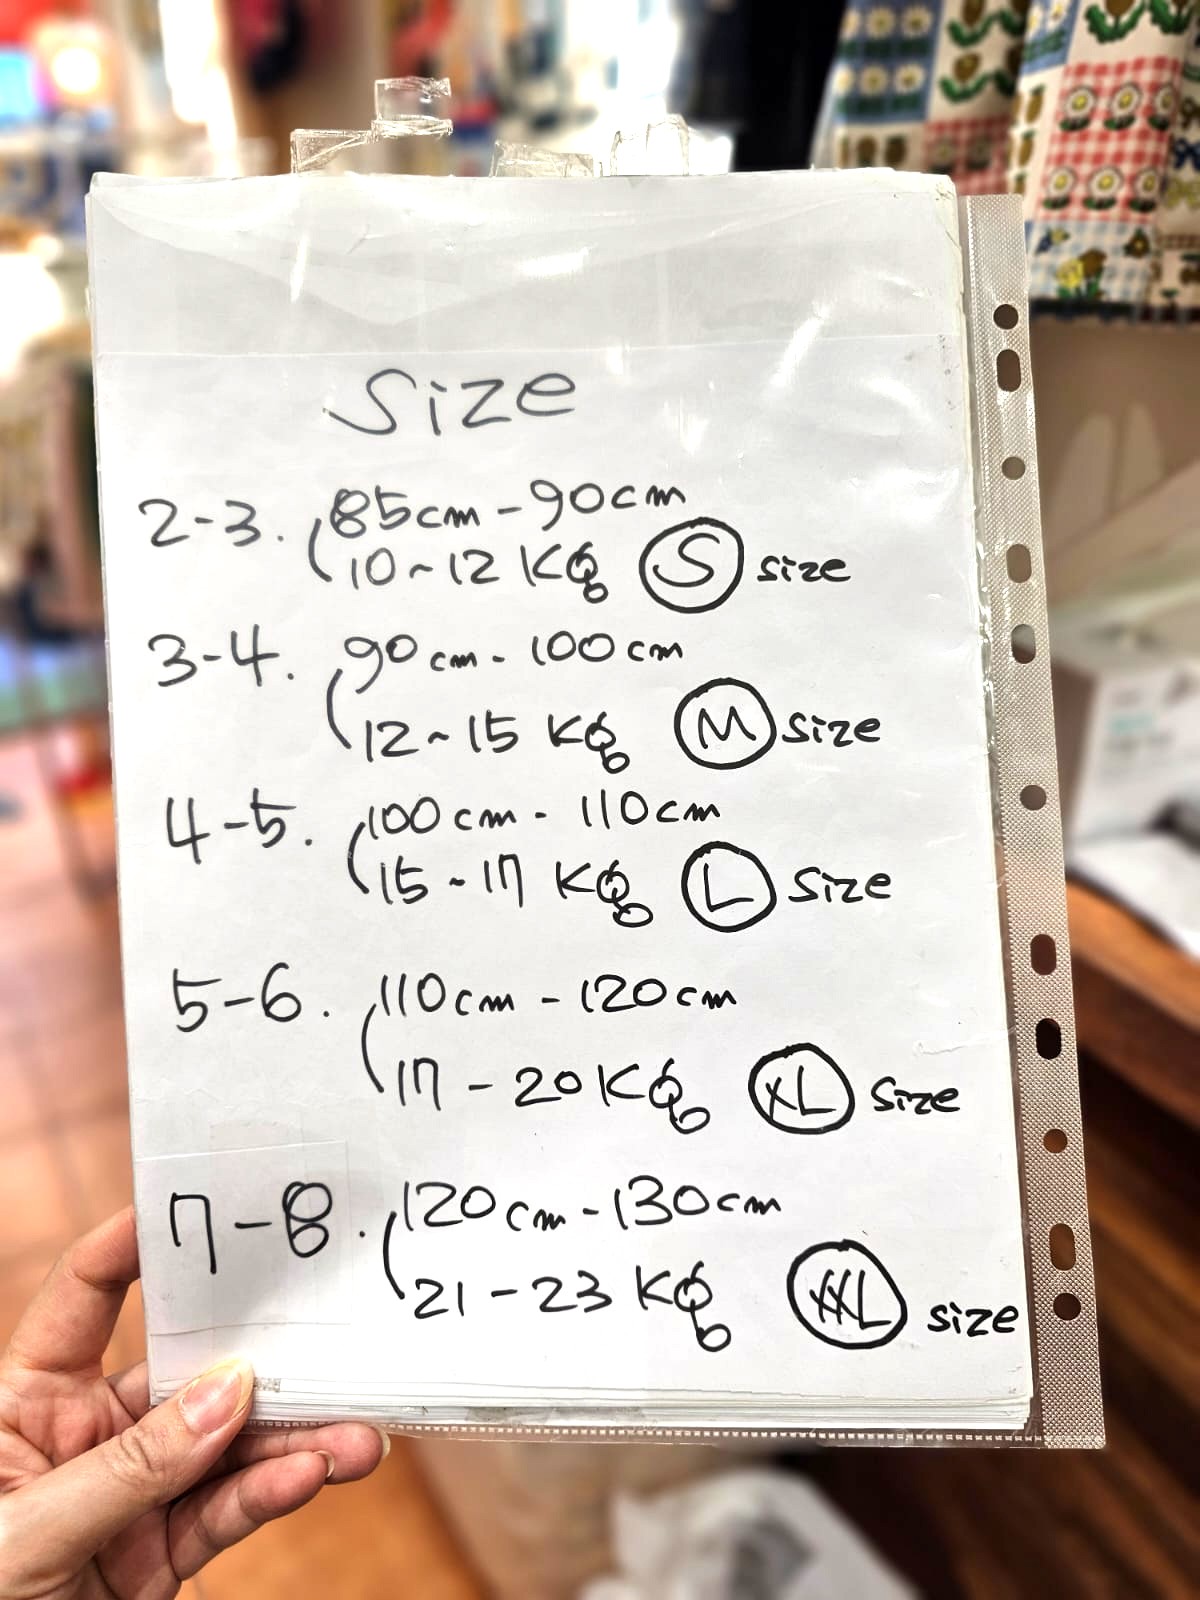 Size
2-3. 85cm - 90cm
10~12 Kg S size
3-4. 90cm - 100cm
12~15 Kg M size
4-5. 100cm - 110cm
15~17 Kg L size
5-6. 110cm - 120cm
17 - 20Kg XL size
7-8. 120cm - 130cm
21 - 23 Kg XXL size